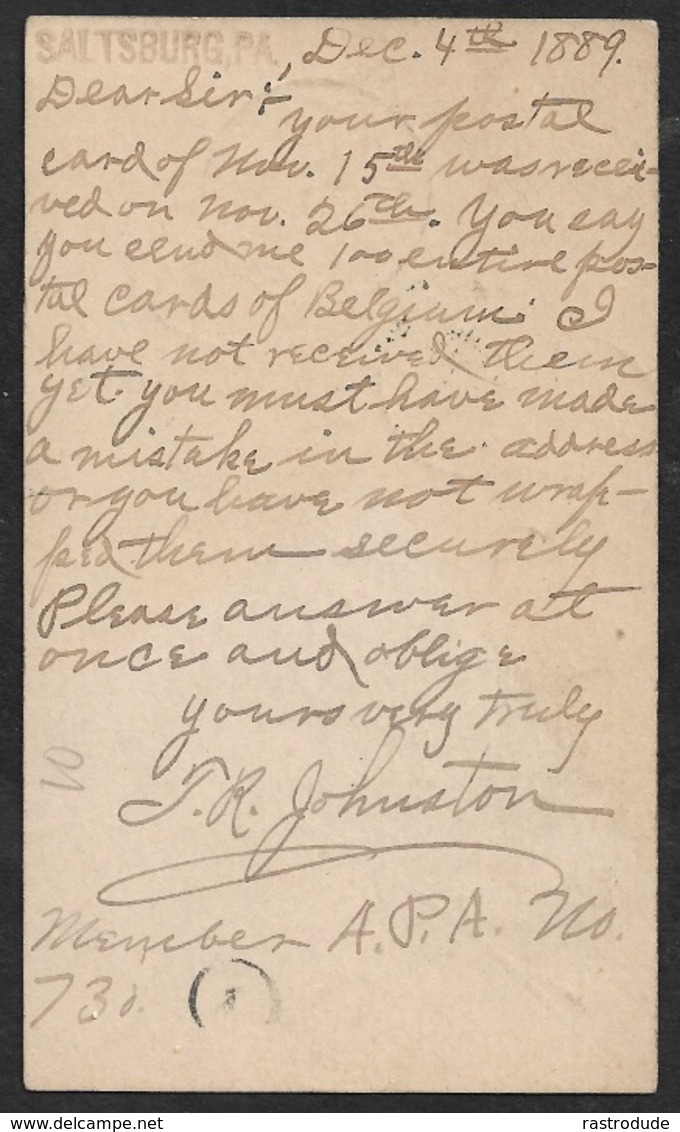 SALTSBURG, PA. , Dec. 4th 1889.
Dear Sir:-
your postal
card of Nov. 15th was recei-
ved on Nov. 26th. You say
you send me 100 entire pos-
tal cards of Belgium. I
have not received them
yet. you must have made
a mistake in the address
or you have not wrap-
ped them securely
Please answer at
once and oblige
yours very truly
T. R. Johnston
Member A.P.A. No.
730.
10
delcampe.net
rastrodude